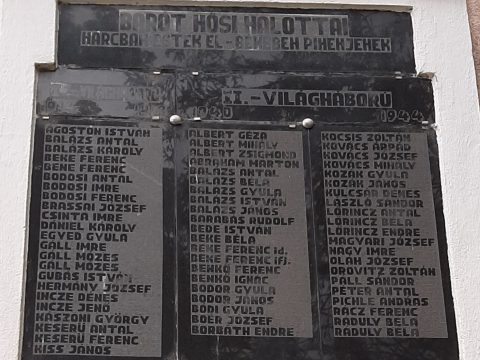 BARÓT HŐSI HALOTTAI
HARCBAN ESTEK EL - BÉKÉBEN PIHENJENEK
I. - VILÁGHÁBORÚ
II. - VILÁGHÁBORÚ
1940 1944
ÁGOSTON ISTVÁN
BALÁZS ANTAL
BALÁZS KÁROLY
BEKE FERENC
BEKE FERENC
BODOSI ANTAL
BODOSI IMRE
BODOSI FERENC
BRASSAI JÓZSEF
CSINTA IMRE
DÁNIEL KÁROLY
EGYED GYULA
GÁLL IMRE
GÁLL MÓZES
GÁLL MÓZES
GUBÁS ISTVÁN
HERMÁNY JÓZSEF
INCZE DÉNES
INCZE JENŐ
KÁSZONI GYÖRGY
KESERŰ ANTAL
KESERŰ FERENC
KISS JÁNOS
ALBERT GÉZA
ALBERT MIHÁLY
ALBERT ZSIGMOND
ÁBRAHÁM MÁRTON
BALÁZS ANTAL
BALÁZS BÉLA
BALÁZS GYULA
BALÁZS ISTVÁN
BALÁZS JÁNOS
BARABÁS RUDOLF
BEDE ISTVÁN
BEKE BÉLA
BEKE FERENC id.
BEKE FERENC ifj.
BENKŐ FERENC
BENKŐ IGNÁC
BODOR GYULA
BODOR JÁNOS
BODI GYULA
BOÉR JÓZSEF
BORBÁTH ENDRE
KOCSIS ZOLTÁN
KOVÁCS ÁRPÁD
KOVÁCS JÓZSEF
KOVÁCS MIHÁLY
KOZÁK GYULA
KOZÁK JÁNOS
KULCSÁR DÉNES
LÁSZLÓ SÁNDOR
LŐRINCZ ANTAL
LŐRINCZ BÉLA
LŐRINCZ ENDRE
MAGYARI JÓZSEF
NAGY IMRE
JÓZSEF
OROVITZ ZOLTÁN
PÁLL SÁNDOR
PÉTER ANTAL
PICHLE ANDRÁS
RÁCZ FERENC
RÁDULY BÉLA
RÁDULY BÉLA